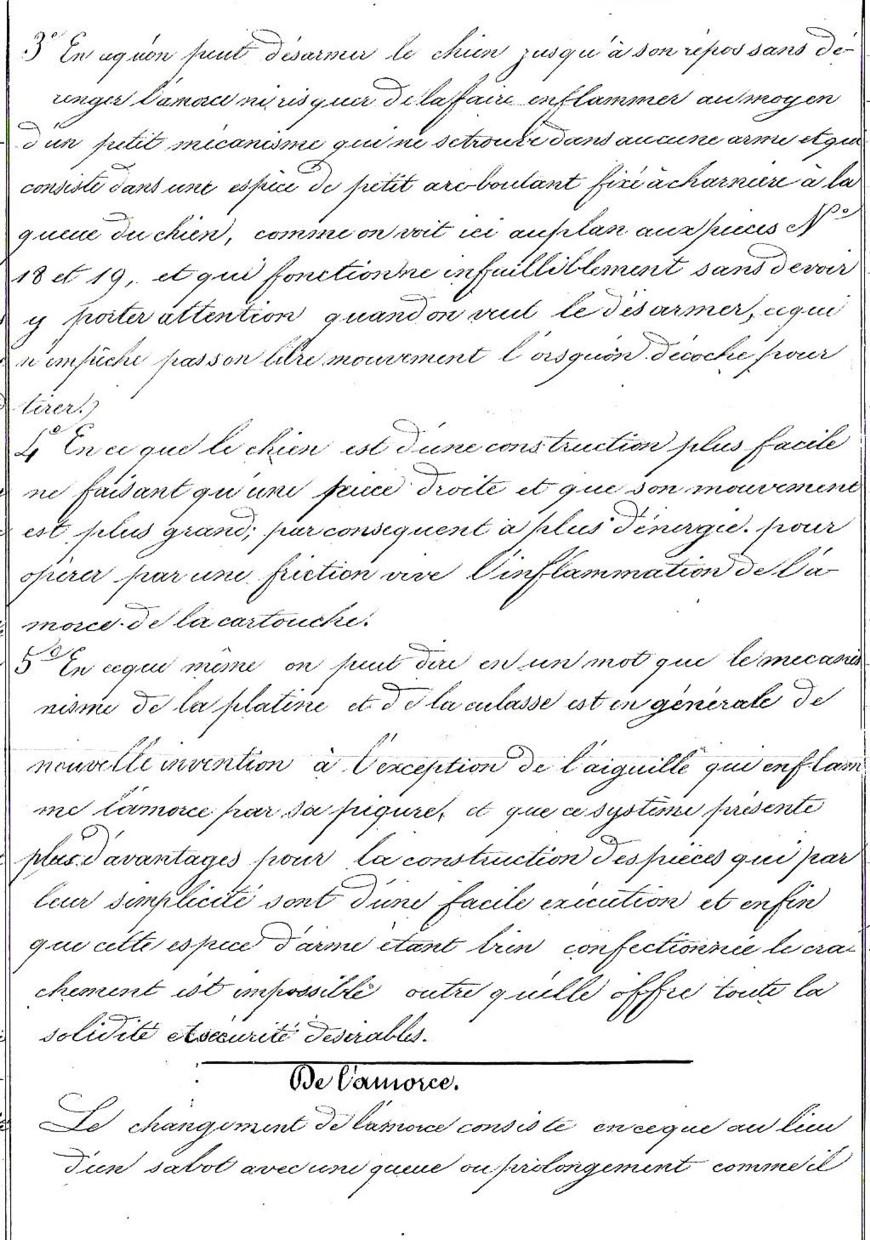 3° En ce qu'on peut désarmer le chien jusqu'à son répos sans dé-
renger l'amorce ni risquer de la faire enflammer au moyen
d'un petit mécanisme qui ne se trouve dans aucune arme et qui
consiste dans une espèce de petit arc-boutant fixé à charnière à la
queue du chien, comme on voit ici au plan aux pièces N°
18 et 19, et qui fonctionne infailliblement sans devoir
y porter attention quand on veut le désarmer, ce qui
n'empêche pas son libre mouvement l'orsqu'on décoche pour
tirer.)
4° En ce que le chien est d'une construction plus facile
ne faisant qu'une pièce droite et que son mouvement
est plus grand; par consequent a plus d'énergie. pour
opérer par une friction vive l'inflammation de l'a-
morce de la cartouche.
5° En ce que même on peut dire en un mot que le mecanis
nisme de la platine et de la culasse est en générale de
nouvelle invention à l'exception de l'aiguille qui enflam
me l'amorce par sa piqure, et que ce système présente
plus d'avantages pour la construction des pièces qui par
leur simplicité sont d'une facile exécution et enfin
que cette espece d'arme étant bien confectionnée le cra-
chement est impossible outre qu'elle offre toute la
solidité et sécurité desirables.
De l'amorce.
Le changement de l'amorce consiste en ce que au lieu
d'un sabot avec une queue ou prolongement comme il